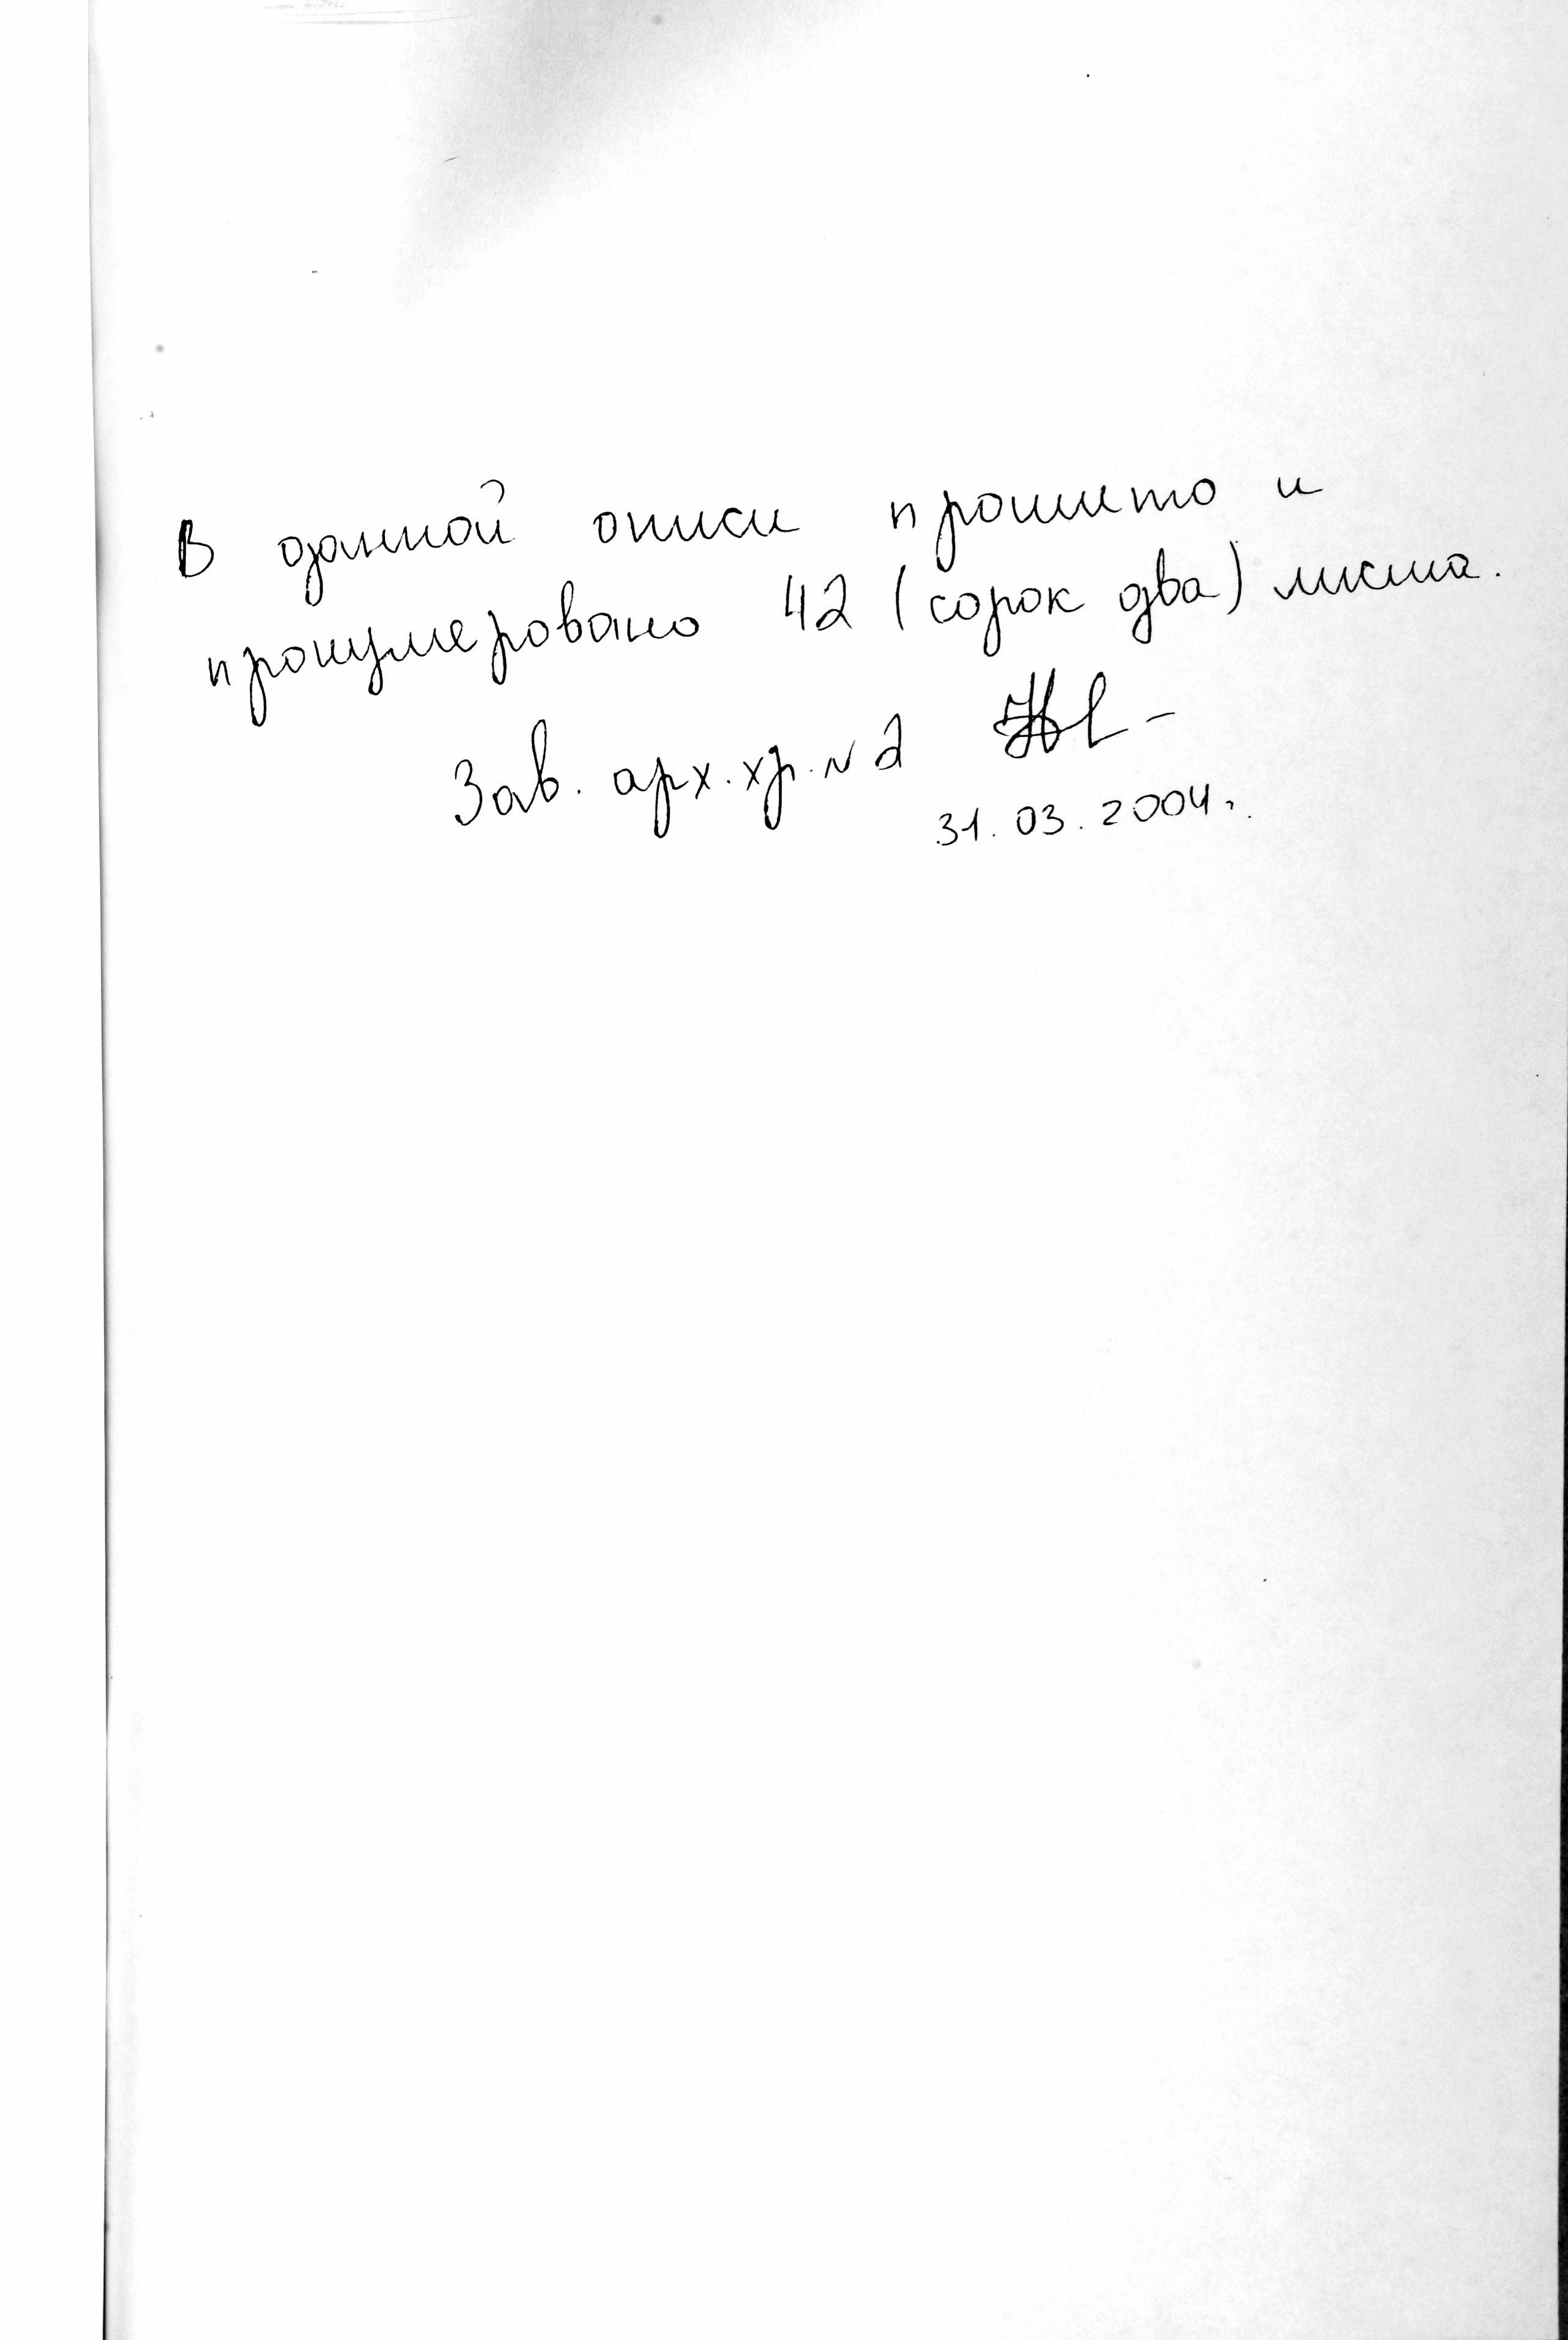 В данной описи прошито и
пронумеровано 42 (сорок два) листа.
Зав. арх. хр. №2
31.03.2004г.